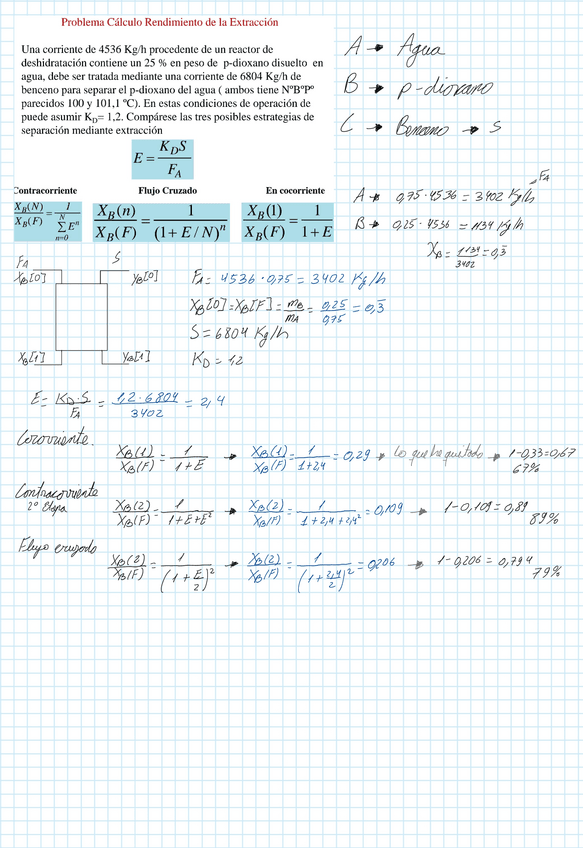 Problema Cálculo Rendimiento de la Extracción
Una corriente de 4536 Kg/h procedente de un reactor de
deshidratación contiene un 25 % en peso de p-dioxano disuelto en
agua, debe ser tratada mediante una corriente de 6804 Kg/h de
benceno para separar el p-dioxano del agua ( ambos tiene NºBºPº
parecidos 100 y 101,1 ºC). En estas condiciones de operación de
puede asumir K_D= 1,2. Compárese las tres posibles estrategias de
separación mediante extracción
E = K_D S / F_A
A → Agua
B → p-dioxano
C → Benceno → S
Contracorriente Flujo Cruzado En cocorriente
X_B(N)/X_B(F) = 1/∑_{n=0}^{N} E^n
X_B(n)/X_B(F) = 1/(1+E/N)^n
X_B(1)/X_B(F) = 1/(1+E)
F_A
A → 0,75·4536 = 3402 Kg/h
B → 0,25·4536 = 1134 Kg/h
X_B = 1134/3402 = 0,3̄
F_A S
X_B[0] y_B[0]
X_B[1] y_B[1]
F_A = 4536·0,75 = 3402 Kg/h
X_B[0] = X_B[F] = m_B/m_A = 0,25/0,75 = 0,3̄
S = 6804 Kg/h
K_D = 1,2
E = K_D·S/F_A = 1,2·6804/3402 = 2,4
Cocorriente.
X_B(1)/X_B(F) = 1/(1+E) → X_B(1)/X_B(F) = 1/(1+2,4) = 0,29 → Lo que he quitado → 1-0,33=0,67
67%
Contracorriente
2º Etapa
X_B(2)/X_B(F) = 1/(1+E+E²) → X_B(2)/X_B(F) = 1/(1+2,4+2,4²) = 0,109 → 1-0,109 = 0,89
89%
Flujo cruzado
X_B(2)/X_B(F) = 1/(1+E/2)² → X_B(2)/X_B(F) = 1/(1+2,4/2)² = 0,206 → 1-0,206 = 0,794
79%